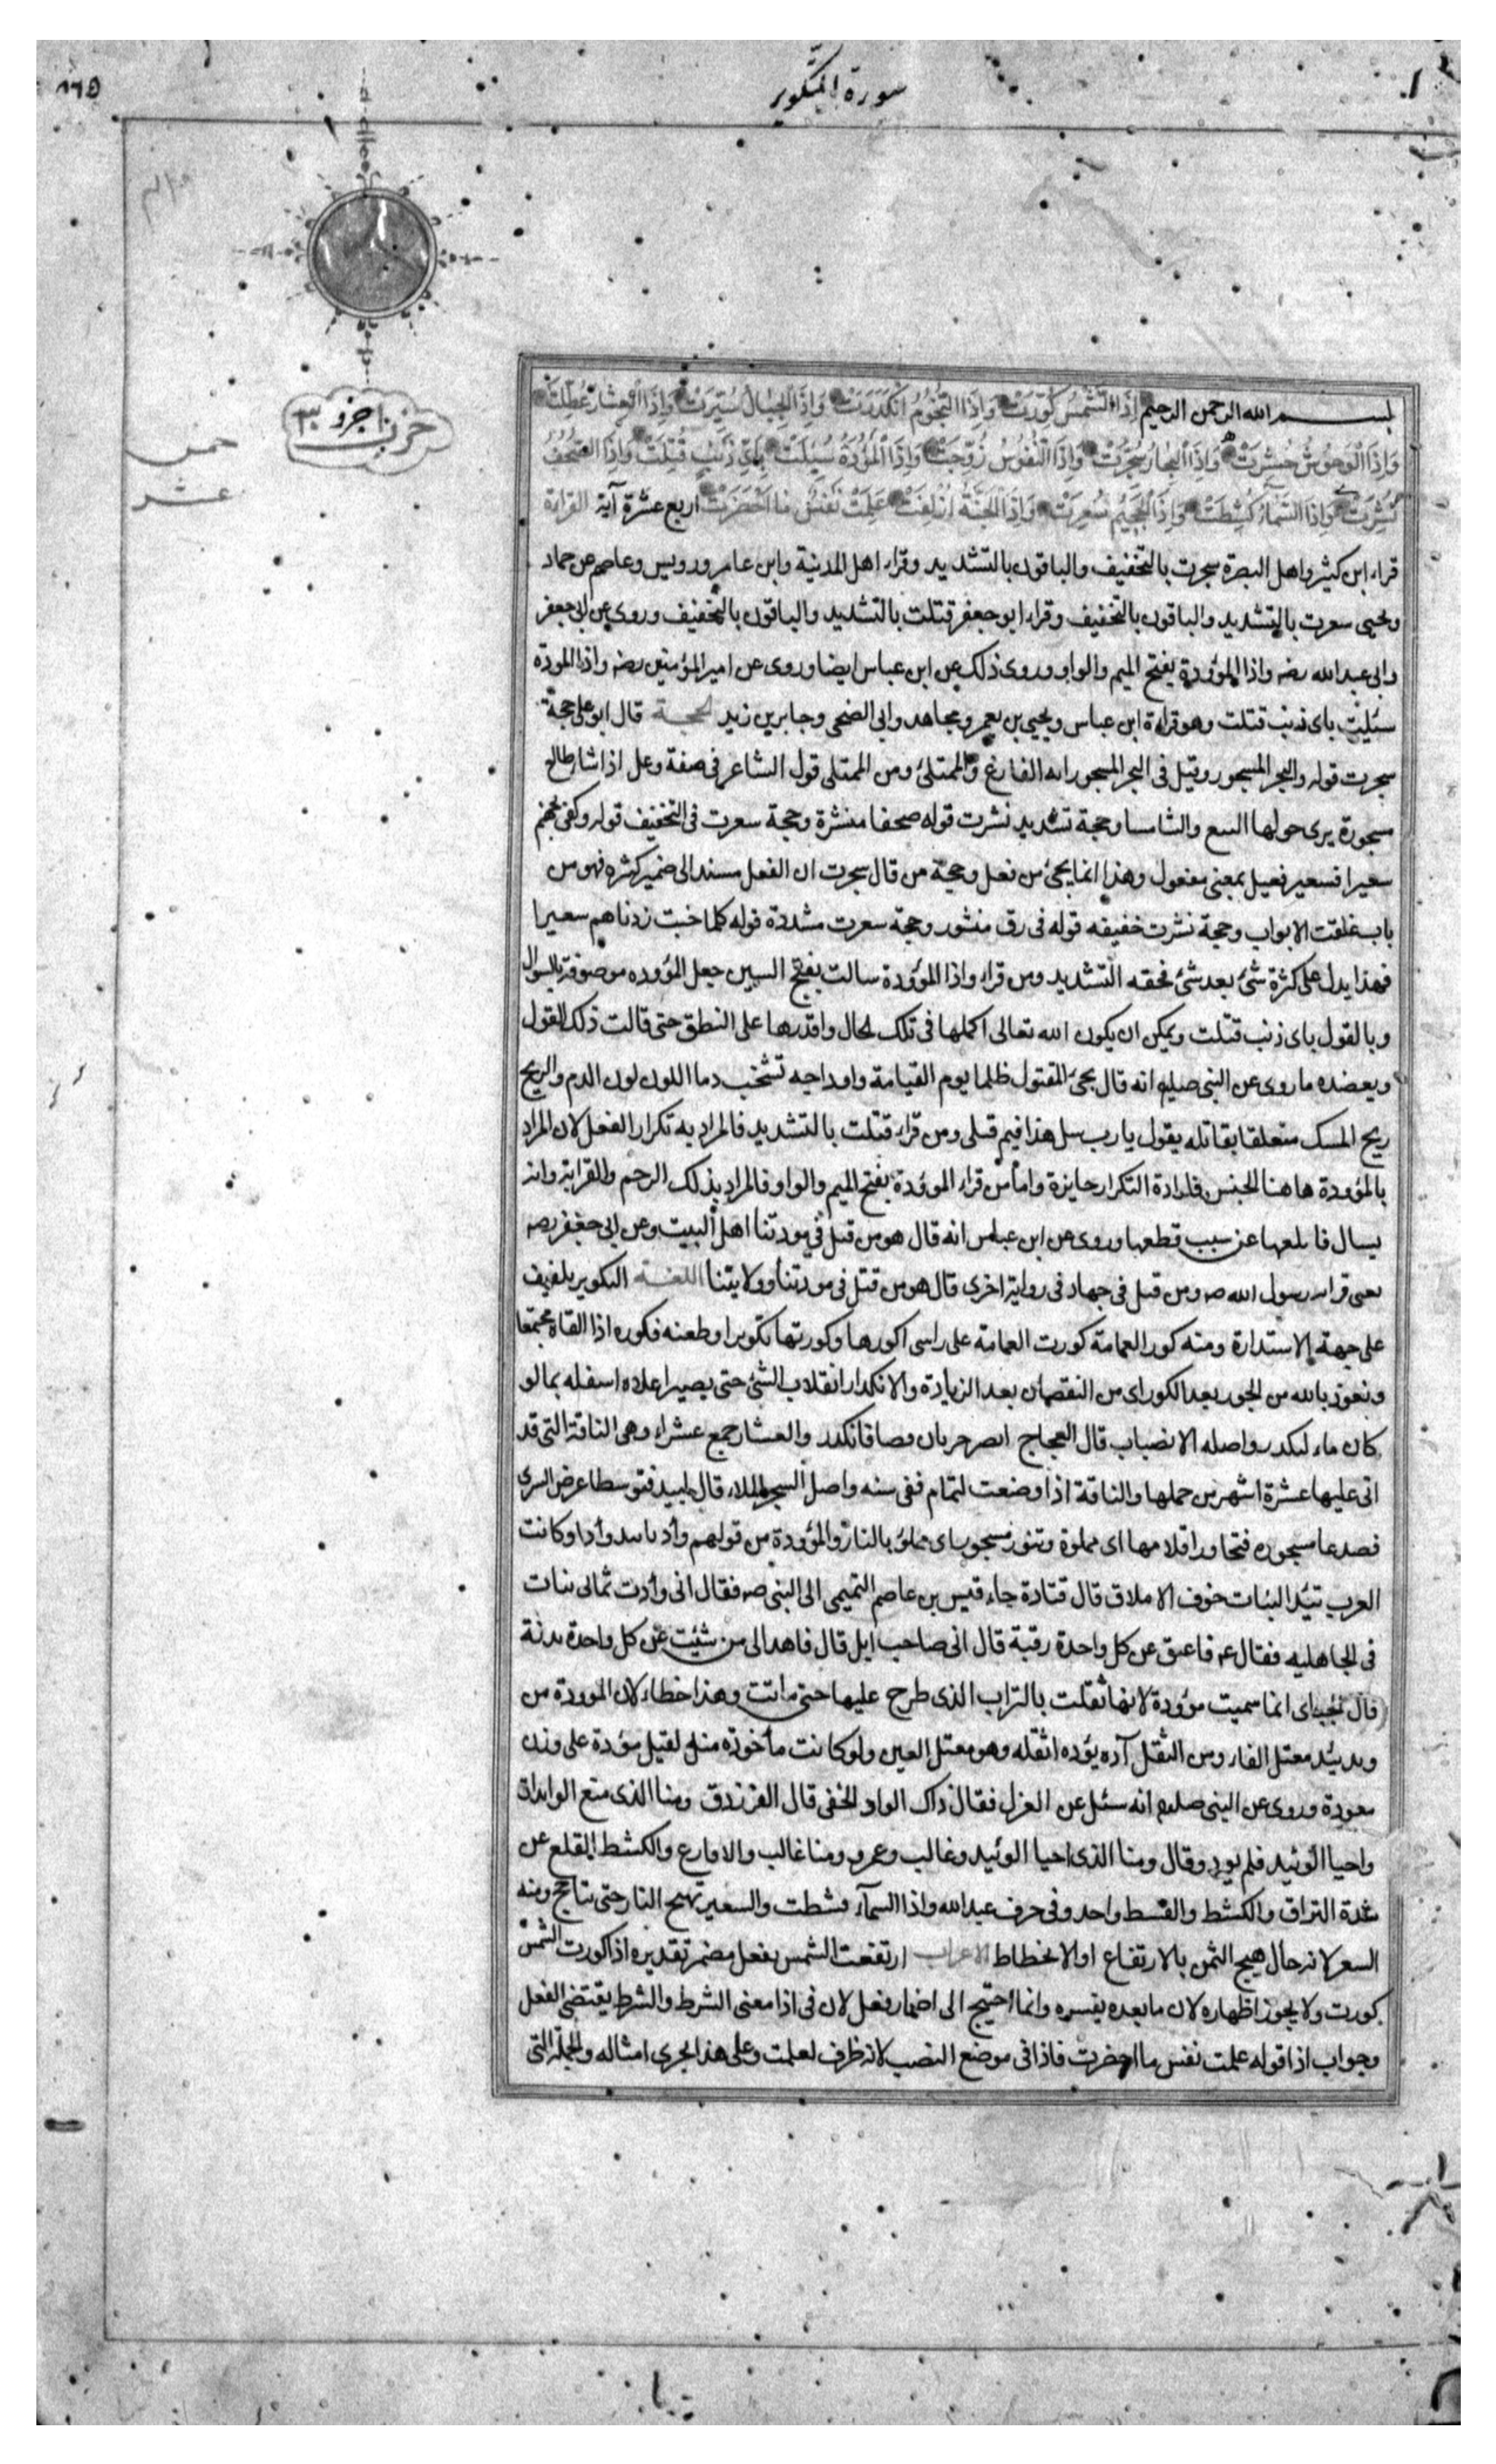 سورة التكوير
١٦٥
حزب ١ جزو ٣٠
خمس
عشر
بسم الله الرحمن الرحيم إِذَا الشَّمْسُ كُوِّرَتْ وَإِذَا النُّجُومُ انْكَدَرَتْ وَإِذَا الْجِبَالُ سُيِّرَتْ وَإِذَا الْعِشَارُ عُطِّلَتْ
وَإِذَا الْوُحُوشُ حُشِرَتْ وَإِذَا الْبِحَارُ سُجِّرَتْ وَإِذَا النُّفُوسُ زُوِّجَتْ وَإِذَا الْمَوْؤُدَةُ سُئِلَتْ بِأَيِّ ذَنْبٍ قُتِلَتْ وَإِذَا الصُّحُفُ
نُشِرَتْ وَإِذَا السَّمَاءُ كُشِطَتْ وَإِذَا الْجَحِيمُ سُعِّرَتْ وَإِذَا الْجَنَّةُ أُزْلِفَتْ عَلِمَتْ نَفْسٌ مَا أَحْضَرَتْ اربع عشرة آية القراءة
قراء ابن كثير واهل البصرة سجرت بالتخفيف والباقون بالتشديد وقراء اهل المدنية وابن عامر ورويس وعاصم عن حماد
ويحيى سعرت بالتشديد والباقون بالتخفيف وقراء ابو جعفر قتلت بالتشديد والباقون بالتخفيف وروى عن ابى جعفر
وابى عبد الله رضه واذا الموؤدة بفتح الميم والواو وروى ذلك عن ابن عباس ايضا وروى عن امير المؤمنين رضه واذا المودة
سئليت باى ذنب قتلت وهو قراءة ابن عباس ويحيى بن يعمر ومجاهد وابى الضحى وجابر بن زيد الحجة قال ابو على حجة
سجرت قوله والبحر المسجور وقيل فى البحر المسجور انه الفارغ والممتلئ ومن الممتلى قول الشاعر فى صفة وعل اذا شا طالع
مسجورة يرى حولها النبع والشاسما وحجة تشديد نشرت قوله صحفا منشرة وحجة سعرت فى التخفيف قوله وكفى بجهنم
سعيرا فسعير فعيل بمعنى مفعول وهذا انما يجئ من فعل وحجة من قال سجرت ان الفعل مسند الى ضمير كثره فهو من
باب غلقت الابواب وحجة نشرت خفيفه قوله فى رق منشور وحجة سعرت مشددة قوله كلما خبت زدناهم سعيرا
فهذا يدل على كثرة شئ بعد شئ فحقه التشديد ومن قراء واذا الموؤدة سالت بفتح السين جعل المؤوده موصوفة بالسوال
وبالقول باى ذنب قتلت ويمكن ان يكون الله تعالى اكملها فى تلك الحال واقدرها على النطق حتى قالت ذلك القول
ويعضده ما روى عن النبى صلعم انه قال يجئ المقتول ظلما يوم القيامة واوداجه تشخب دما اللون لون الدم والريح
ريح المسك متعلقا بقاتله يقول يا رب سل هذا فيم قتلى ومن قراء قتلت بالتشديد فالمراد به تكرار الفعل لان المراد
بالمؤودة هاهنا الجنس فارادة التكرار جايزة واما من قراء الموؤدة بفتح الميم والواو فالمراد بذلك الرحم والقرابة وانه
يسال قاطعها عن سبب قطعها وروى عن ابن عباس انه قال هو من قتل فى مودتنا اهل البيت وعن ابى جعفر رضه
يعنى قرابه رسول الله صه ومن قتل فى جهاد فى رواية اخرى قال هو من قتل فى مودتنا وولايتنا اللغة التكوير بلفيف
على جهة الاستدارة ومنه كور العمامة كورت العمامة على راسى اكورها وكورتها تكويرا وطعنه فكوره اذا القاه مجتمعا
ونعوذ بالله من الحور بعد الكور اى من النقصان بعد الزيادة والانكدار انقلاب الشئ حتى يصير اعلاه اسفله بما لو
كان ماء لتكدر واصله الانصباب قال العجاج ابصر خربان فصافانكدر والعشار جمع عشراء وهى الناقة التى قد
اتى عليها عشرة اشهر من حملها والناقة اذا وضعت لتمام ففى سنه واصل السجر الملاء قال لبيد فتوسطا عرض السرى
فصدعا مسجوره فتجاورا قلامها اى مملوة وتنور مسجور اى مملوء بالنار والموؤدة من قولهم وأد يائد وأدا وكانت
العرب تئد البنات خوف الاملاق قال قتادة جاء قيس بن عاصم التميمى الى النبى صه فقال انى وأدت ثمانى بنات
فى الجاهليه فقال عم فاعتق عن كل واحدة رقبة قال انى صاحب ابل قال فاهد الى من شئيت عن كل واحدة بدنة
قال الجباى انما سميت موؤدة لانها ثقلت بالتراب الذى طرح عليها حتى ماتت وهذا خطاء لان الموودة من
ويد يئد معتل الفاء ومن الثقل آده يؤده اثقله وهو معتل العين ولو كانت مأخوذه منه لقيل مؤدة على وزن
معودة وروى عن النبى صلعم انه سئل عن العزل فقال ذاك الواد الخفى قال الفرزدق ومنا الذى منع الوايدات
واحيا الوئيد فلم يورد وقال ومنا الذى احيا الوئيد وغالب وعمرو ومنا غالب والاقارع والكشط القلع عن
شدة التراق والكشط والقسط واحد وفى حرف عبد الله واذا السمآء قشطت والسعير تهيج النار حتى تتاجج ومنه
السعر لانه حال هيج الثمن بالارتفاع او الانخطاط الاعراب ارتفعت الشمس بفعل مضمر تقديره اذا كورت الشمس
كورت ولا يجوز اظهاره لان ما بعده يفسره وانما احتيج الى اضمار فعل لان فى اذا معنى الشرط والشرط يقتضى الفعل
وجواب اذا قوله علمت نفس ما احضرت فاذا فى موضع النصب لانه ظرف لعلمت وعلى هذا يجرى امثاله والجملة التى